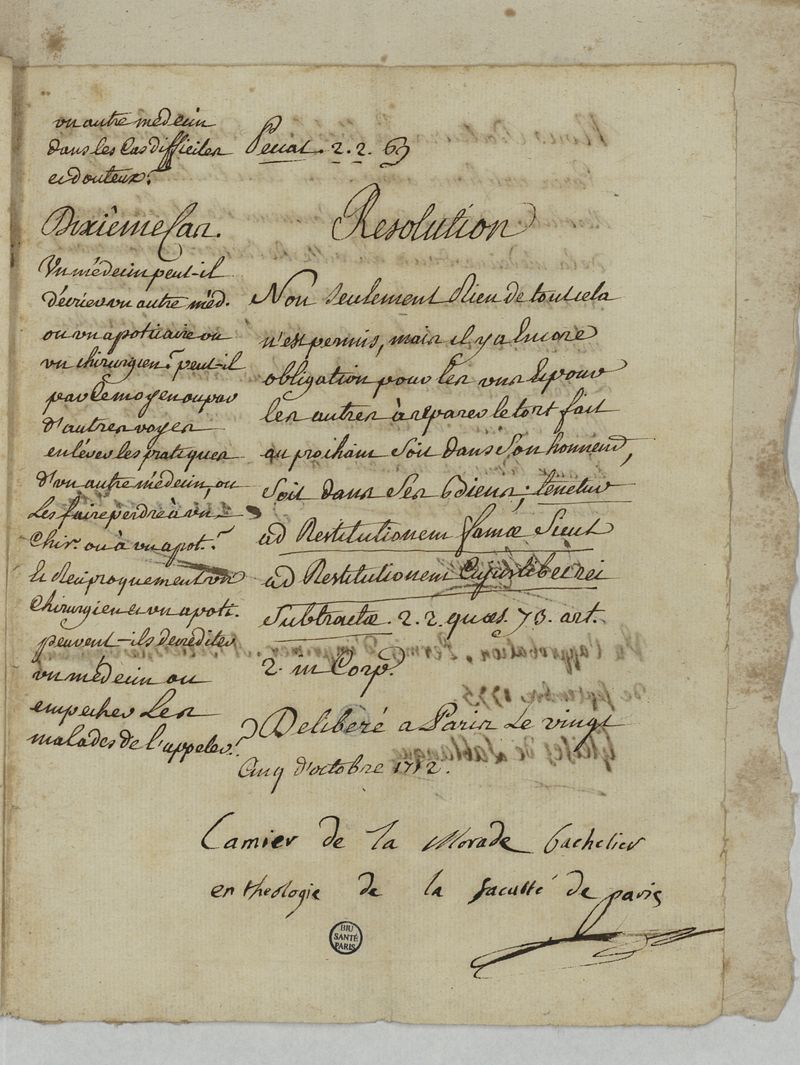 un autre médecin
dans les Cas difficiles
et douteux?
Dixième Cas.
Un médecin peut-il
décrier un autre méd.
ou un apoticaire ou
un chirurgien? peut-il
par le moyen ou par
d'autres voyes
enlever les pratiques
d'un autre médecin, ou
Les faire perdre à un
Chir. ou à un apot.?
Et Reciproquement un
Chirurgien et un apoti.
peuvent-ils decrediter
un médecin ou
empecher Les
malades de l'appeler?
Peccat. 2. 2. 63
Resolution
Non Seulement Rien de tout cela
n'est permis, mais il y a Encore
obligation pour les uns Et pour
les autres à réparer le tort fait
au prochain Soit dans Son honneur,
Soit dans Ses biens; tenetur
ad Restitutionem famæ Sicut
ad Restitutionem Cujuslibet rei
Subtractæ. 2. 2. quæs. 73. art.
2. in Corp.
Deliberé a Paris Le vingt
Cinq d'octobre 1712.
Camier de la Morade bachelier
en theologie de la faculté de paris
BIU
SANTÉ
PARIS